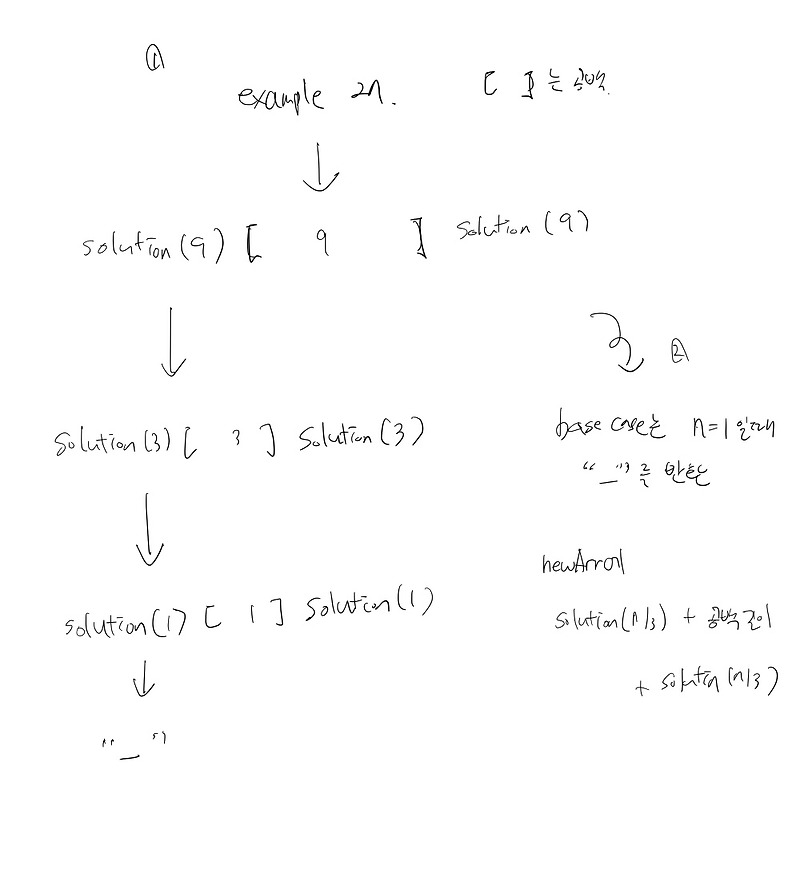 ①
example 27. [ ] 는 공백.
solution(9) [ 9 ] solution(9)
②
solution(3) [ 3 ] solution(3)
base case는 n=1 일때
"_"를 반환
newArray
solution(1) [ 1 ] solution(1)
solution(n/3) + 공백길이
+ solution(n/3)
"_"